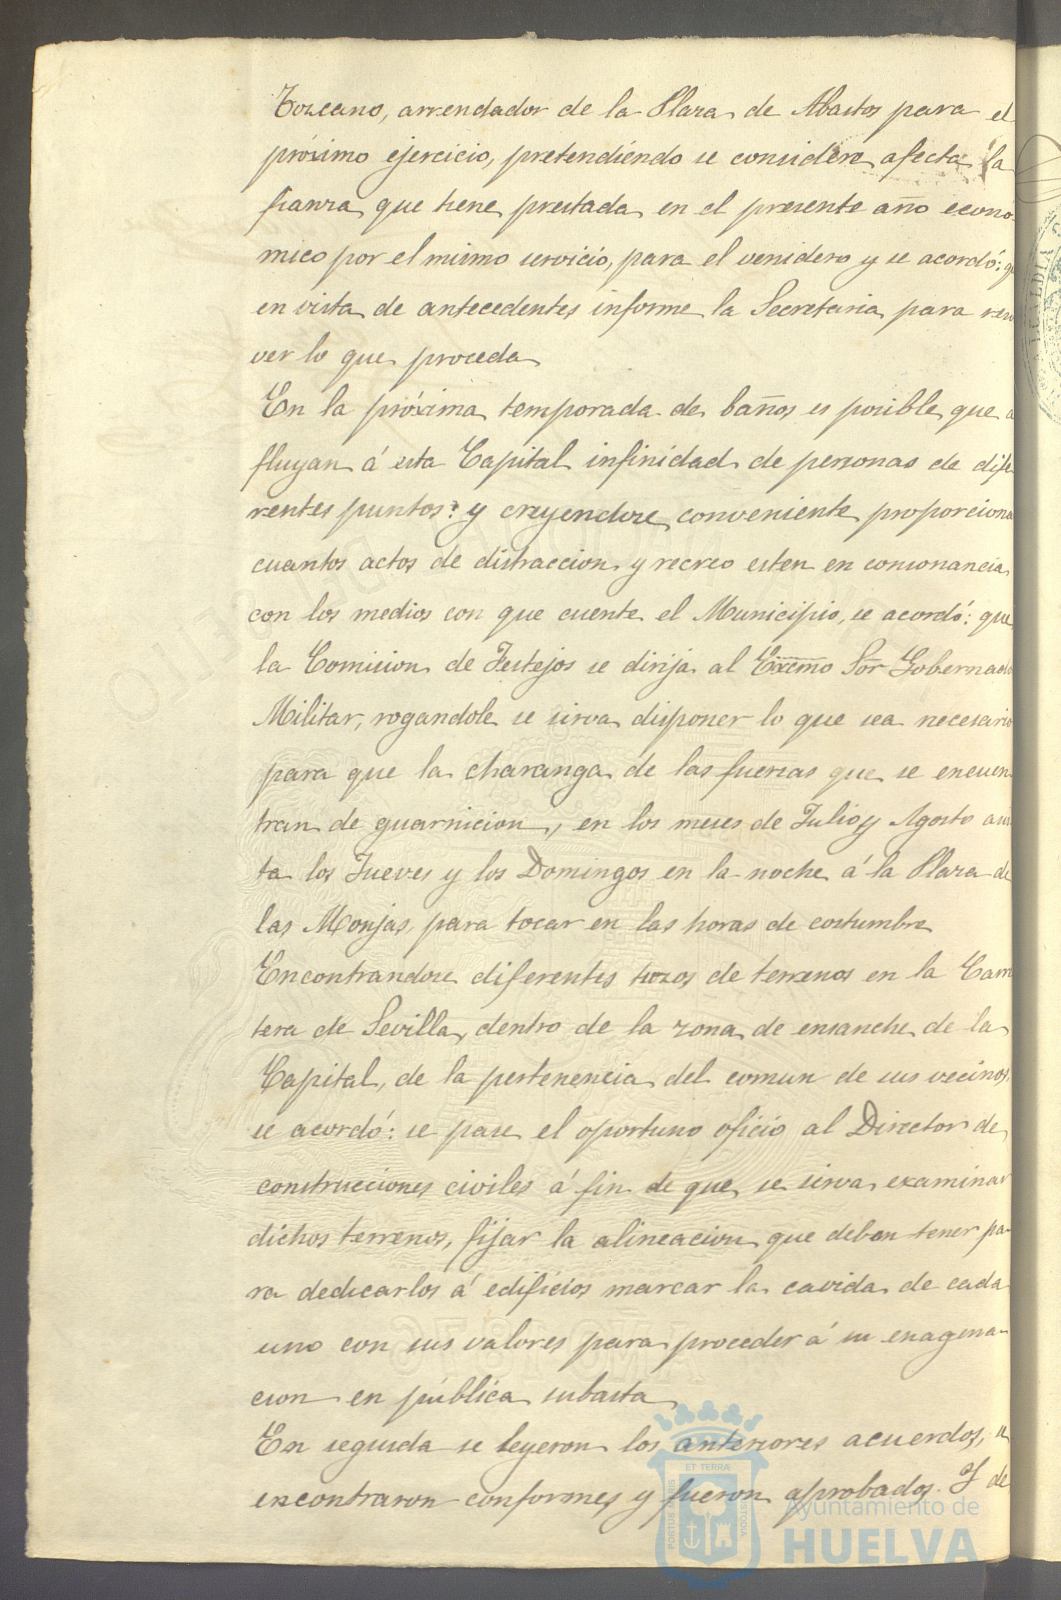 Toscano, arrendador de la Plaza de Abastos para el
próximo ejercicio, pretendiendo se considere afecta la
fianza que tiene prestada en el presente año econó-
mico por el mismo servicio, para el venidero y se acordó: q
en vista de antecedentes informe la Secretaria para resol
ver lo que proceda
En la próxima temporada de baños es posible que a
fluyan á esta Capital infinidad de personas de dife
rentes puntos: y creyendose conveniente proporciona
cuantos actos de distraccion y recreo esten en consonancia
con los medios con que cuente el Municipio, se acordó: que
la Comision de Festejos se dirija al Excmo Sor Gobernado
Militar, rogandole se sirva disponer lo que sea necesario
para que la charanga de las fuerzas que se encuen
tran de guarnicion, en los meses de Julio y Agosto asis
ta los Jueves y los Domingos en la noche á la Plaza de
las Monjas, para tocar en las horas de costumbre
Encontrandose diferentes trozos de terrenos en la Carre
tera de Sevilla, dentro de la zona de ensanche de la
Capital, de la pertenencia del comun de sus vecinos,
se acordó: se pase el oportuno oficio al Director de
construcciones civiles á fin de que se sirva examinar
dichos terrenos, fijar la alineacion que deben tener pa-
ra dedicarlos á edificios marcar la cavida de cada
uno con sus valores para proceder á su enagena-
cion en pública subasta
En seguida se leyeron los anteriores acuerdos, se
encontraron conformes y fueron aprobados. Y de
ET TERRÆ
PORTUS MARIS
CUSTODIA
Ayuntamiento de
HUELVA